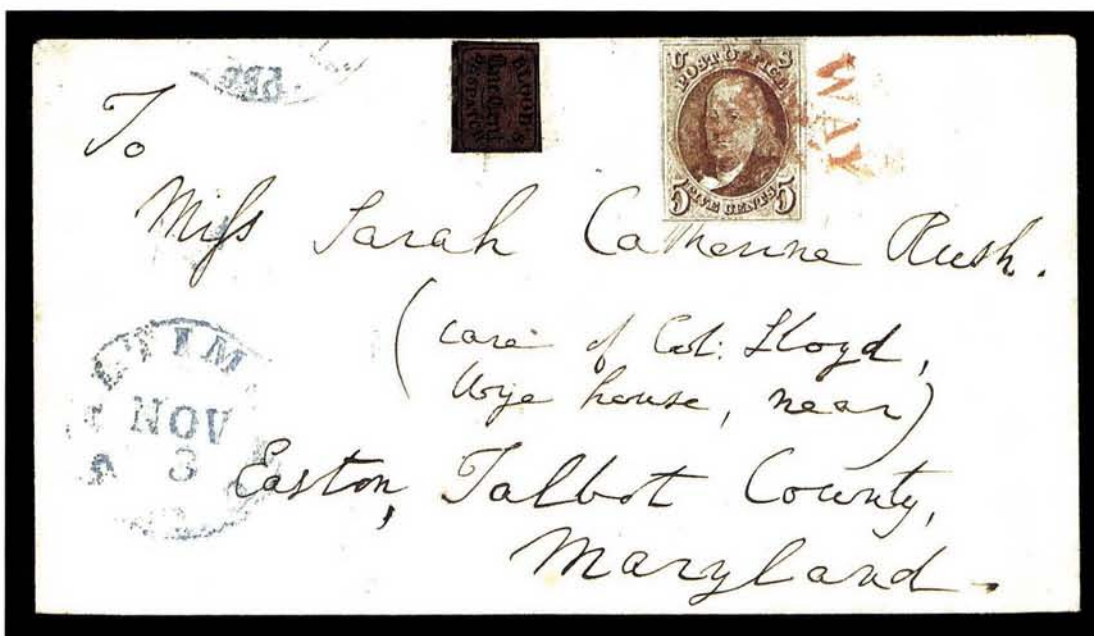 BLOOD'S
One Cent
DESPATCH
U S
POST OFFICE
5 FIVE CENTS 5
WAY
To
Miſs Sarah Catherine Rush.
(care of Col: Lloyd,
Wye house, near)
Easton, Talbot County,
Maryland.
NOV
3